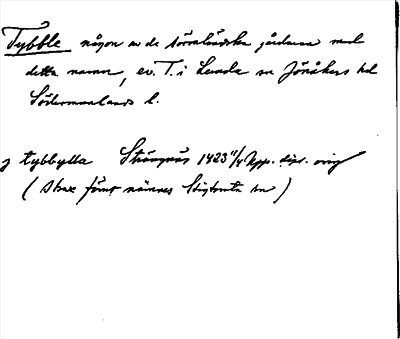 Tybble någon av de sörmländska gårdarna med
detta namn, ev. T. i Lunda sn Jönåkers hd
Södermanlands l.
j tybbylla Strängnäs 1423 11/4 Upp. dipl. orig
( strax förut nämnes Stigtomta sn )